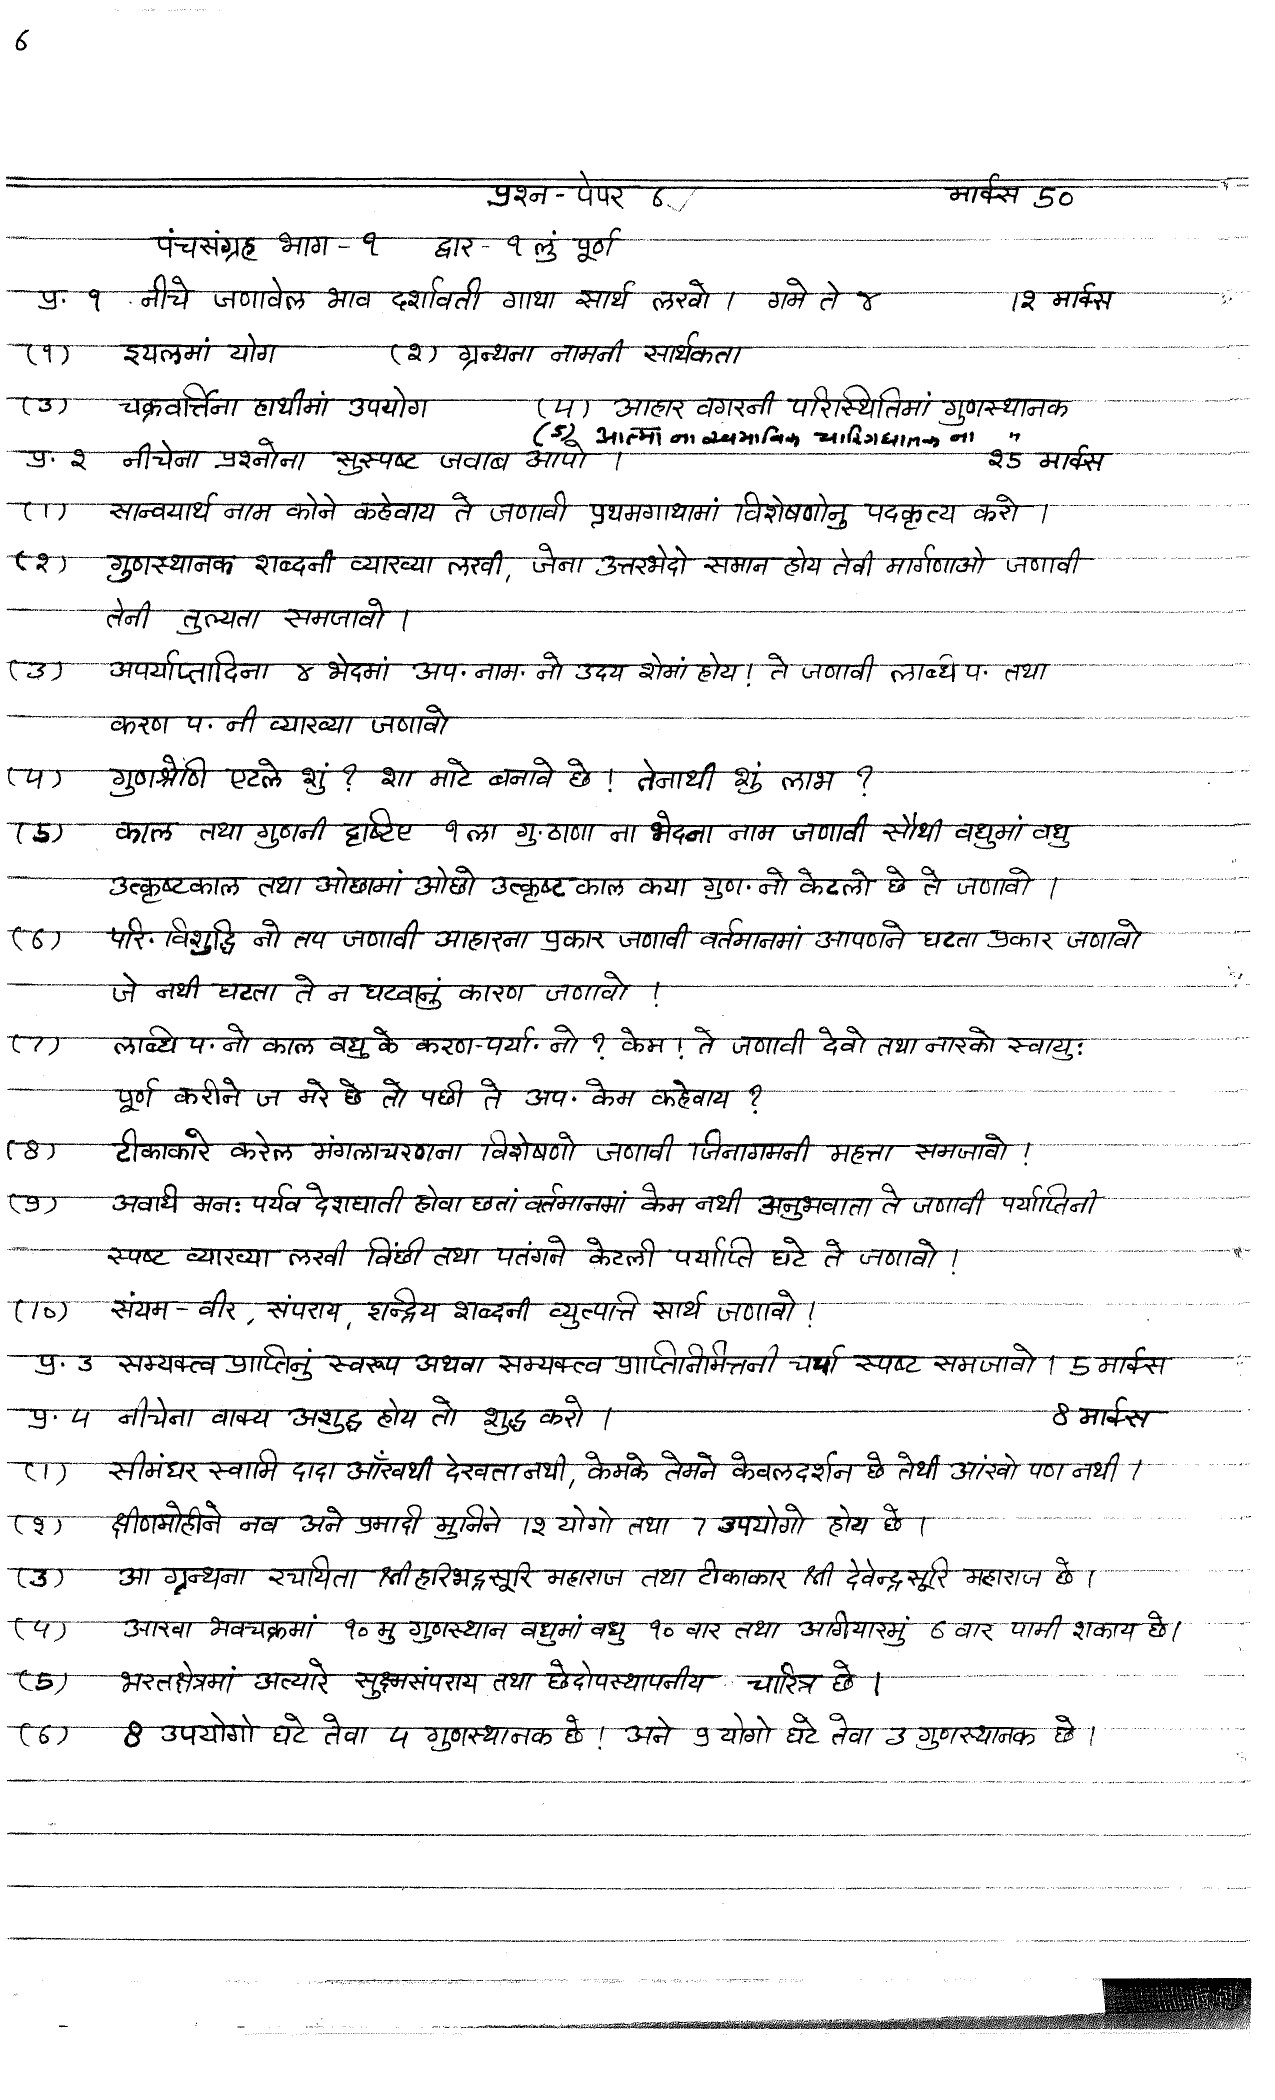 6
प्रश्न - पेपर ६ मार्क्स 50
पंचसंग्रह भाग - १ द्वार - १ लुं पूर्ण
प्र. १ नीचे जणावेल भाव दर्शावती गाथा सार्थ लखो । गमे ते ४ 12 मार्क्स
(१) इयलमां योग (२) ग्रन्थना नामनी सार्थकता
(३) चक्रवर्त्तिना हाथीमां उपयोग (५) आहार वगरनी परिस्थितिमां गुणस्थानक
(5) आत्मा ना चारित्रघातक ना "
प्र. २ नीचेना प्रश्नोना सुस्पष्ट जवाब आपो । २5 मार्क्स
(1) सान्वयार्थ नाम कोने कहेवाय ते जणावी प्रथमगाथामां विशेषणोनु पदकृत्य करो ।
(२) गुणस्थानक शब्दनी व्याख्या लखी, जेना उत्तरभेदो समान होय तेवी मार्गणाओ जणावी
तेनी तुल्यता समजावो ।
(3) अपर्याप्तादिना ४ भेदमां अप. नाम. नो उदय शेमां होय! ते जणावी लब्धि प. तथा
करण प. नी व्याख्या जणावो
(५) गुणश्रेणि एटले शुं ? शा माटे बनावे छे ! तेनाथी शुं लाभ ?
(5) काल तथा गुणनी दृष्टिए १ला गु. ठाणा ना भेदना नाम जणावी सौथी वधुमां वधु
उत्कृष्टकाल तथा ओछामां ओछो उत्कृष्ट काल कया गुण. नो केटलो छे ते जणावो ।
(6) परि. विशुद्धि नो तप जणावी आहारना प्रकार जणावी वर्तमानमां आपणने घटता प्रकार जणावो
जे नथी घटता ते न घटवानुं कारण जणावो !
(7) लब्धि प. नो काल वधु के करण-पर्या. नो ? केम ! ते जणावी देवो तथा नारको स्वायु:
पूर्ण करीने ज मरे छे तो पछी ते अप. केम कहेवाय ?
(8) टीकाकारे करेल मंगलाचरणना विशेषणो जणावी जिनागमनी महत्ता समजावो !
(9) अवधि मन: पर्यव देशघाती होवा छतां वर्तमानमां केम नथी अनुभवाता ते जणावी पर्याप्तिनी
स्पष्ट व्याख्या लखी विंछी तथा पतंगने केटली पर्याप्ति घटे ते जणावो !
(10) संयम - वीर, संपराय, इन्द्रिय शब्दनी व्युत्पत्ति सार्थ जणावो !
प्र. 3 सम्यक्त्व प्राप्तिनुं स्वरूप अथवा सम्यक्त्व प्राप्तिनिमित्तनी चर्चा स्पष्ट समजावो । 5 मार्क्स
प्र. ५ नीचेना वाक्य अशुद्ध होय तो शुद्ध करो । 8 मार्क्स
(1) सीमंधर स्वामि दादा आँखथी देखता नथी, केमके तेमने केवलदर्शन छे तेथी आंखो पण नथी ।
(२) क्षीणमोहीने नव अने प्रमादी मुनिने 12 योगो तथा 7 उपयोगो होय छे ।
(3) आ ग्रन्थना रचयिता श्री हरिभद्रसूरि महाराज तथा टीकाकार श्री देवेन्द्रसूरि महाराज छे ।
(५) आखा भवचक्रमां १० मु गुणस्थान वधुमां वधु १० वार तथा अगियारमुं 6 वार पामी शकाय छे ।
(5) भरतक्षेत्रमां अत्यारे सुक्ष्मसंपराय तथा छेदोपस्थापनीय चारित्र छे ।
(6) 8 उपयोगो घटे तेवा ५ गुणस्थानक छे ! अने 9 योगो घटे तेवा 3 गुणस्थानक छे ।